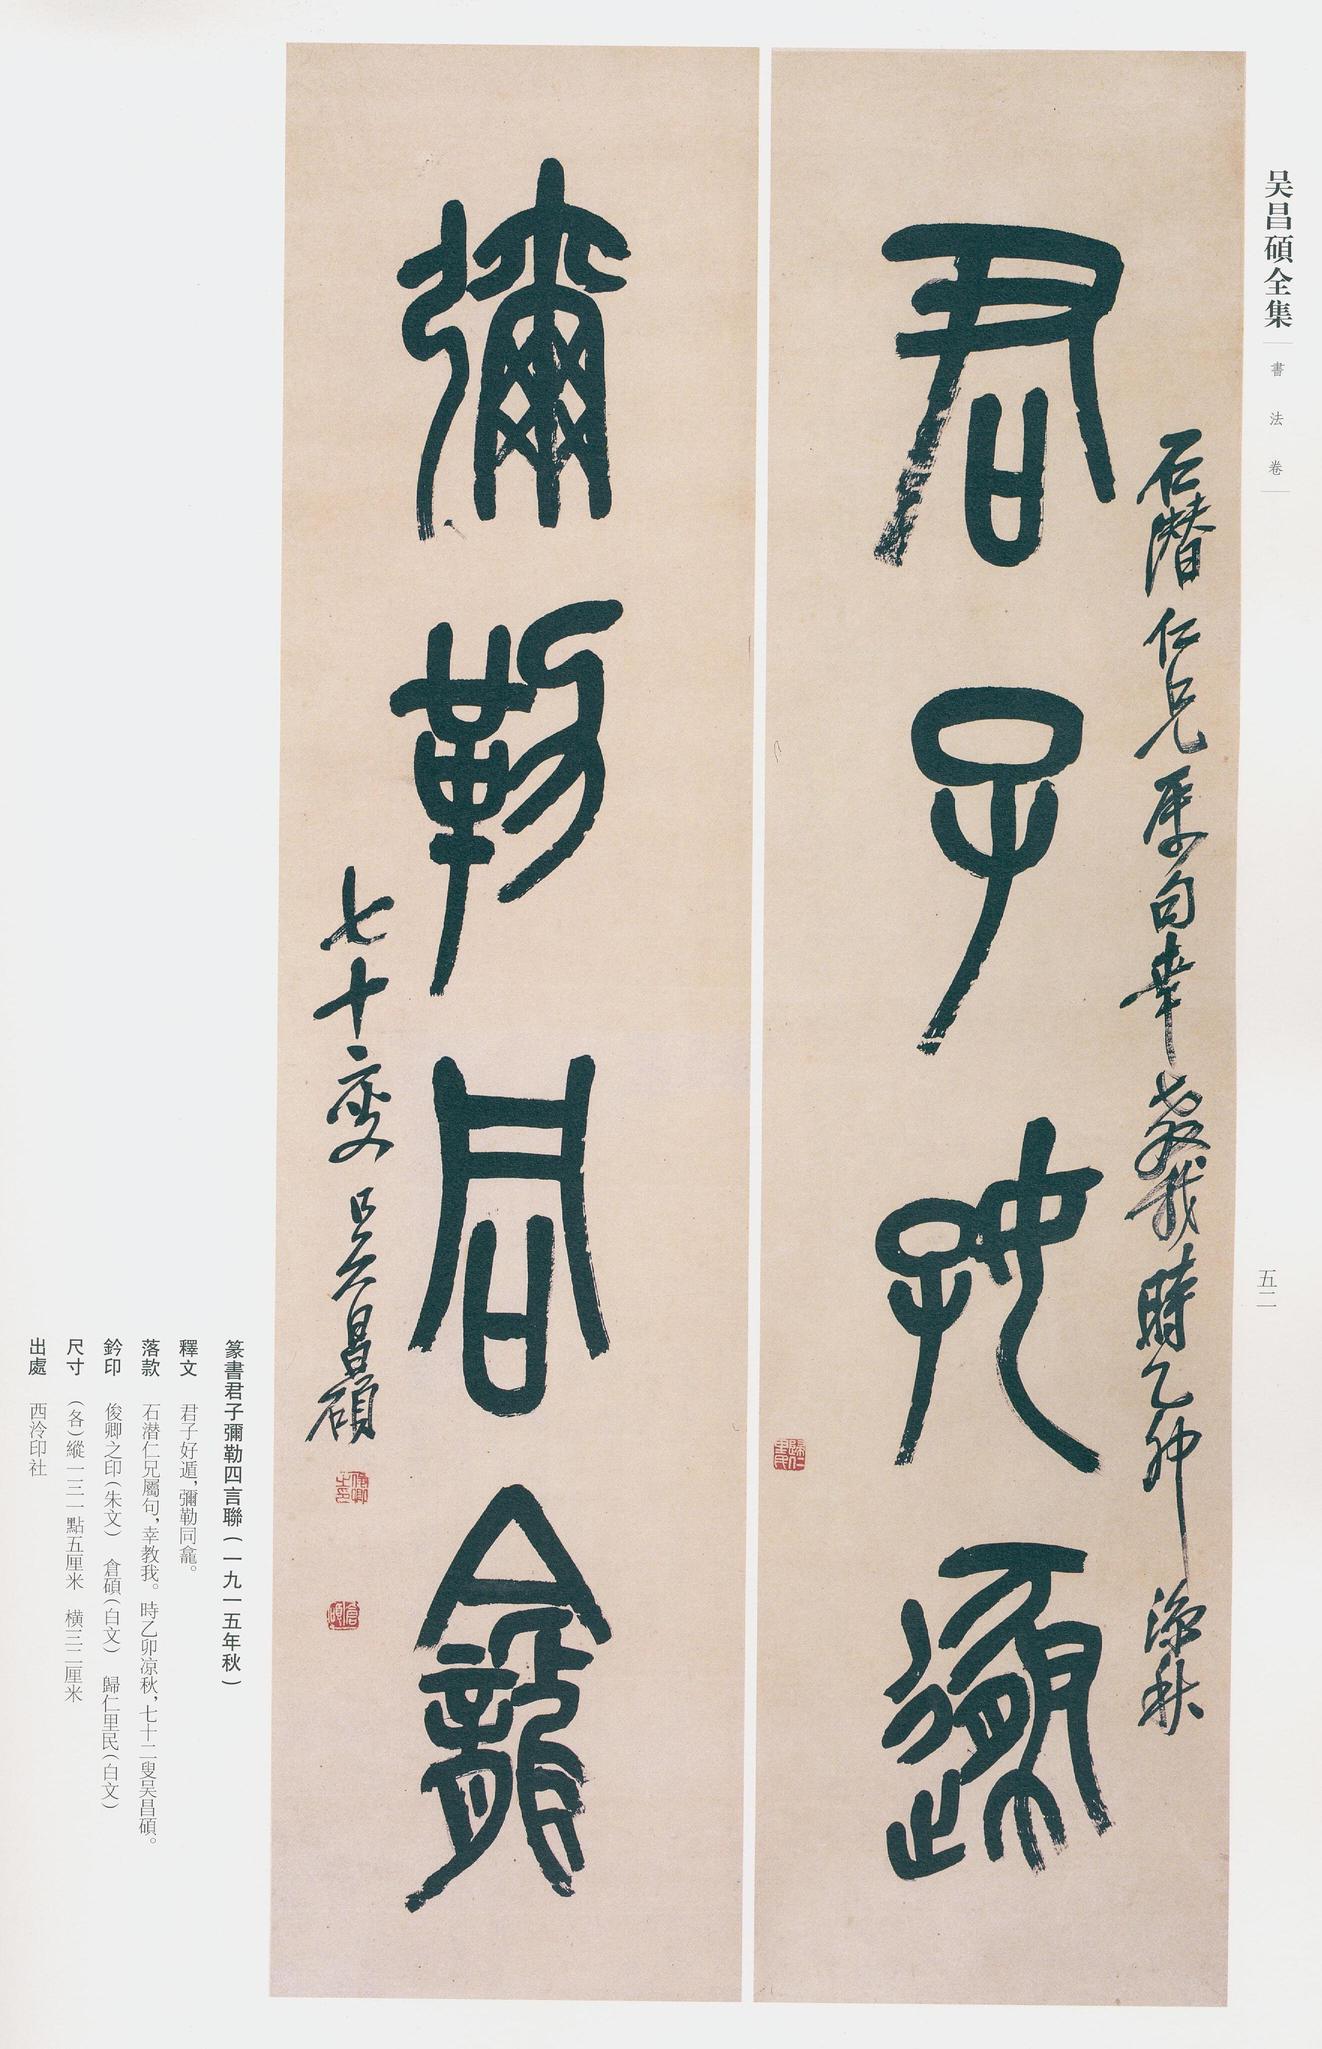 吴昌碩全集
書法卷
五二
石潜仁兄属句幸教我時乙卯涼秋
君子好遯
彌勒同龕
七十二叟吴昌碩
歸仁里民
俊卿之印
倉碩
篆書君子彌勒四言聯(一九一五年秋)
釋文 君子好遁,彌勒同龕。
落款 石潜仁兄屬句,幸教我。時乙卯凉秋,七十二叟吴昌碩。
鈐印 俊卿之印(朱文) 倉碩(白文) 歸仁里民(白文)
尺寸 (各)縱一三一點五厘米 横三二厘米
出處 西泠印社